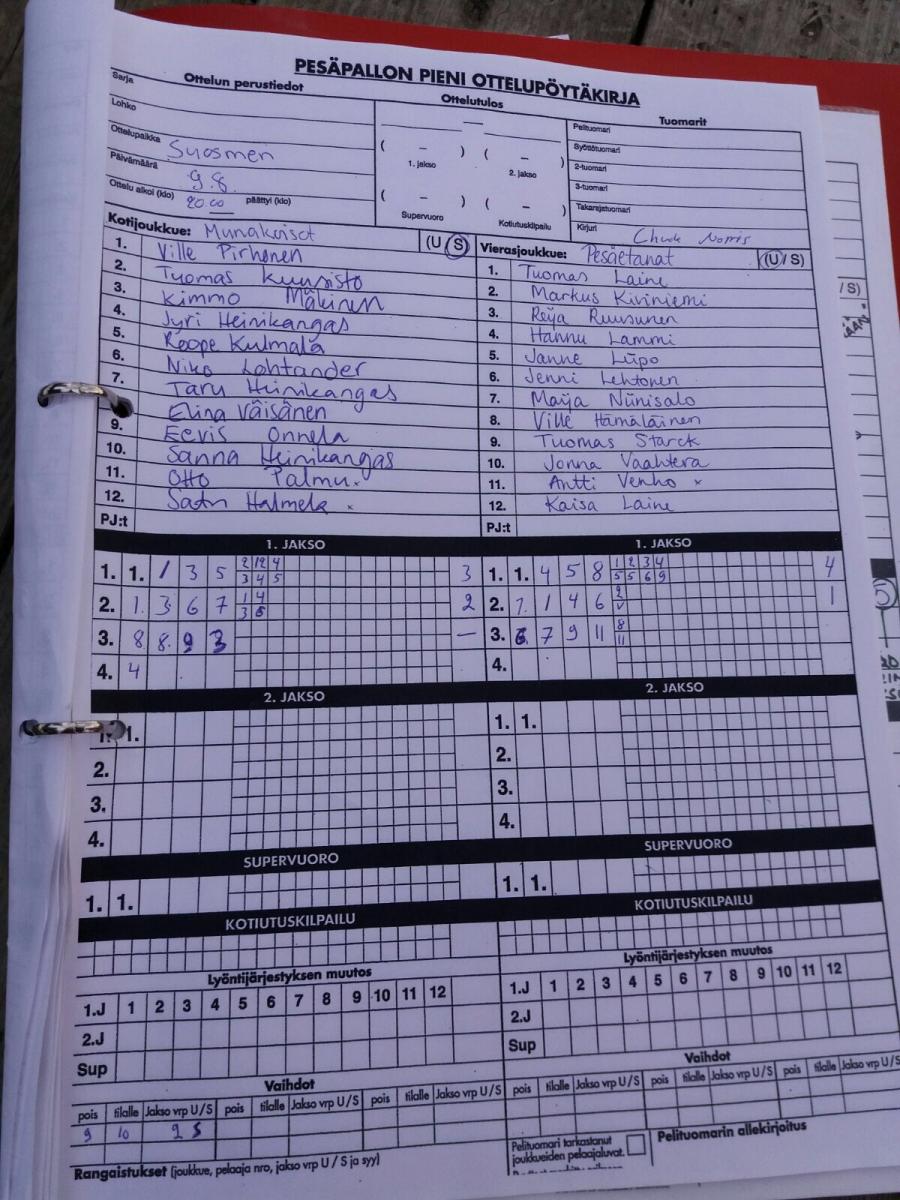 PESÄPALLON PIENI OTTELUPÖYTÄKIRJA
Sarja
Ottelun perustiedot
Ottelutulos
Tuomarit
Lohko
Ottelupaikka Suosmeri
Päivämäärä 9.8.
Ottelu alkoi (klo) 20.00 päättyi (klo)
( – ) ( – )
1. jakso 2. jakso
( – ) ( – )
Supervuoro Kotiutuskilpailu
Pelituomari
Syöttötuomari
2-tuomari
3-tuomari
Takarajatuomari
Kirjuri Chuck Norris
Kotijoukkue: Munakoisot (U S)
1. Ville Pirhonen
2. Tuomas Kuusisto
3. Kimmo Mäkinen
4. Jyri Heinikangas
5. Roope Kulmala
6. Niko Lohtander
7. Taru Heinikangas
Elina Väisänen
9. Eevis Onnela
10. Sanna Heinikangas
11. Otto Palmu x
12. Satu Halmela x
PJ:t
Vierasjoukkue: Pesäetanat (U / S)
1. Tuomas Laine
2. Markus Kiviniemi
3. Reija Ruusunen
4. Hannu Lammi
5. Janne Liipo
6. Jenni Lehtonen
7. Maija Niinisalo
8. Ville Hämäläinen
9. Tuomas Starck
10. Jonna Vaahtera
11. Antti Venho x
12. Kaisa Laine
PJ:t
1. JAKSO
1. 1. 1 3 5 2 12 4 3
3 4 5
2. 1. 3 6 7 1 4 2
3 6
3. 8 8. 9 3 –
4. 4
1. JAKSO
1. 1. 4 5 8 1 2 3 4 4
5 5 6 9
2. 7. 1 4 6 2 1
3. 6. 7 9 11 8
11
4.
2. JAKSO
1. 1.
2.
3.
4.
2. JAKSO
1. 1.
2.
3.
4.
SUPERVUORO
1. 1.
SUPERVUORO
1. 1.
KOTIUTUSKILPAILU
KOTIUTUSKILPAILU
Lyöntijärjestyksen muutos
1.J 1 2 3 4 5 6 7 8 9 10 11 12
2.J
Sup
Lyöntijärjestyksen muutos
1.J 1 2 3 4 5 6 7 8 9 10 11 12
2.J
Sup
Vaihdot
pois tilalle Jakso vrp U/S pois tilalle Jakso vrp U/S pois tilalle Jakso vrp U/S
9 10 2 S
Vaihdot
pois tilalle Jakso vrp U/S pois tilalle Jakso vrp U/S pois tilalle Jakso vrp U/S
Rangaistukset (joukkue, pelaaja nro, jakso vrp U / S ja syy)
Pelituomari tarkastanut
joukkueiden pelaajaluvat.
Pelituomarin allekirjoitus
/ S)